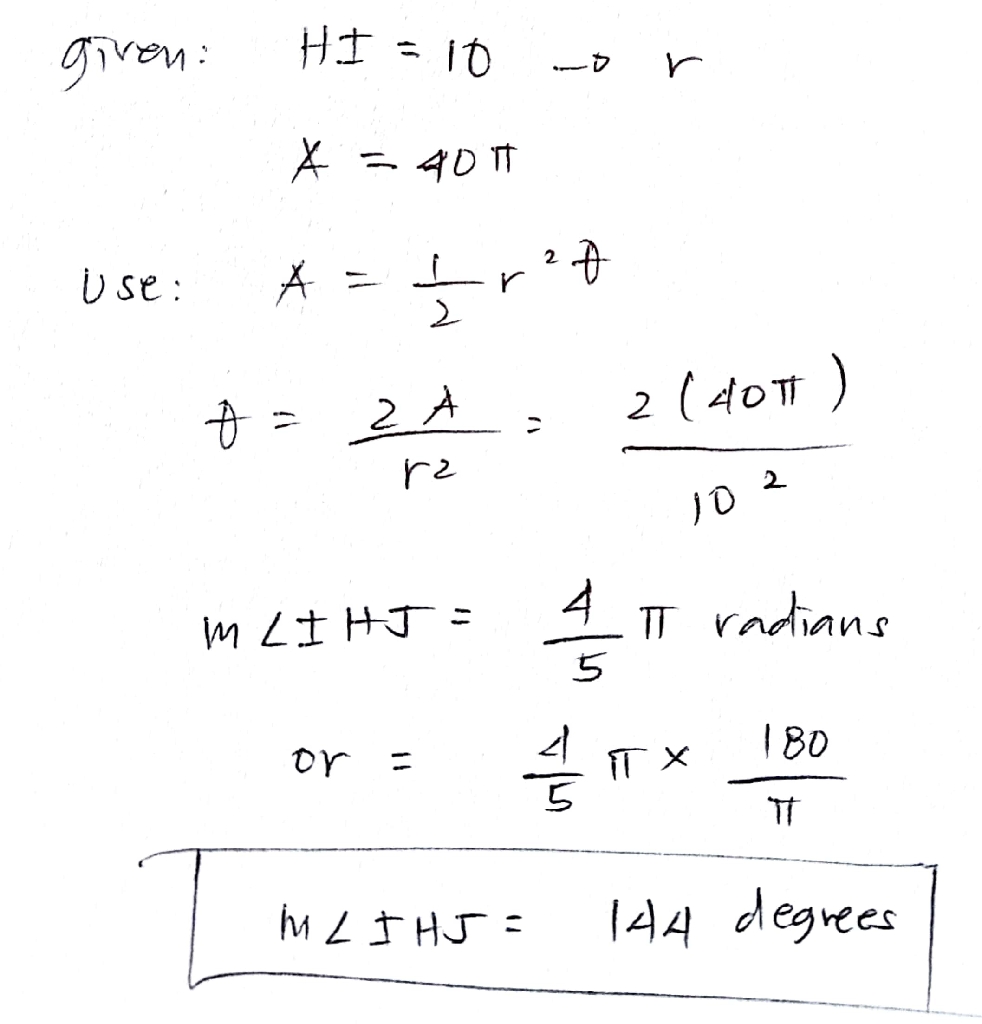 given: HI = 10 → r
A = 40π
Use: A = 1/2 r²θ
θ = 2A/r² = 2(40π)/10²
m∠IHJ = 4/5 π radians
or = 4/5 π × 180/π
m∠IHJ = 144 degrees